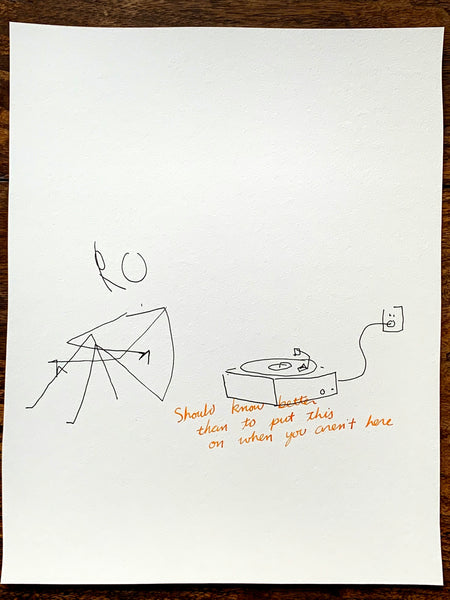 Should know better
than to put this
on when you aren't here